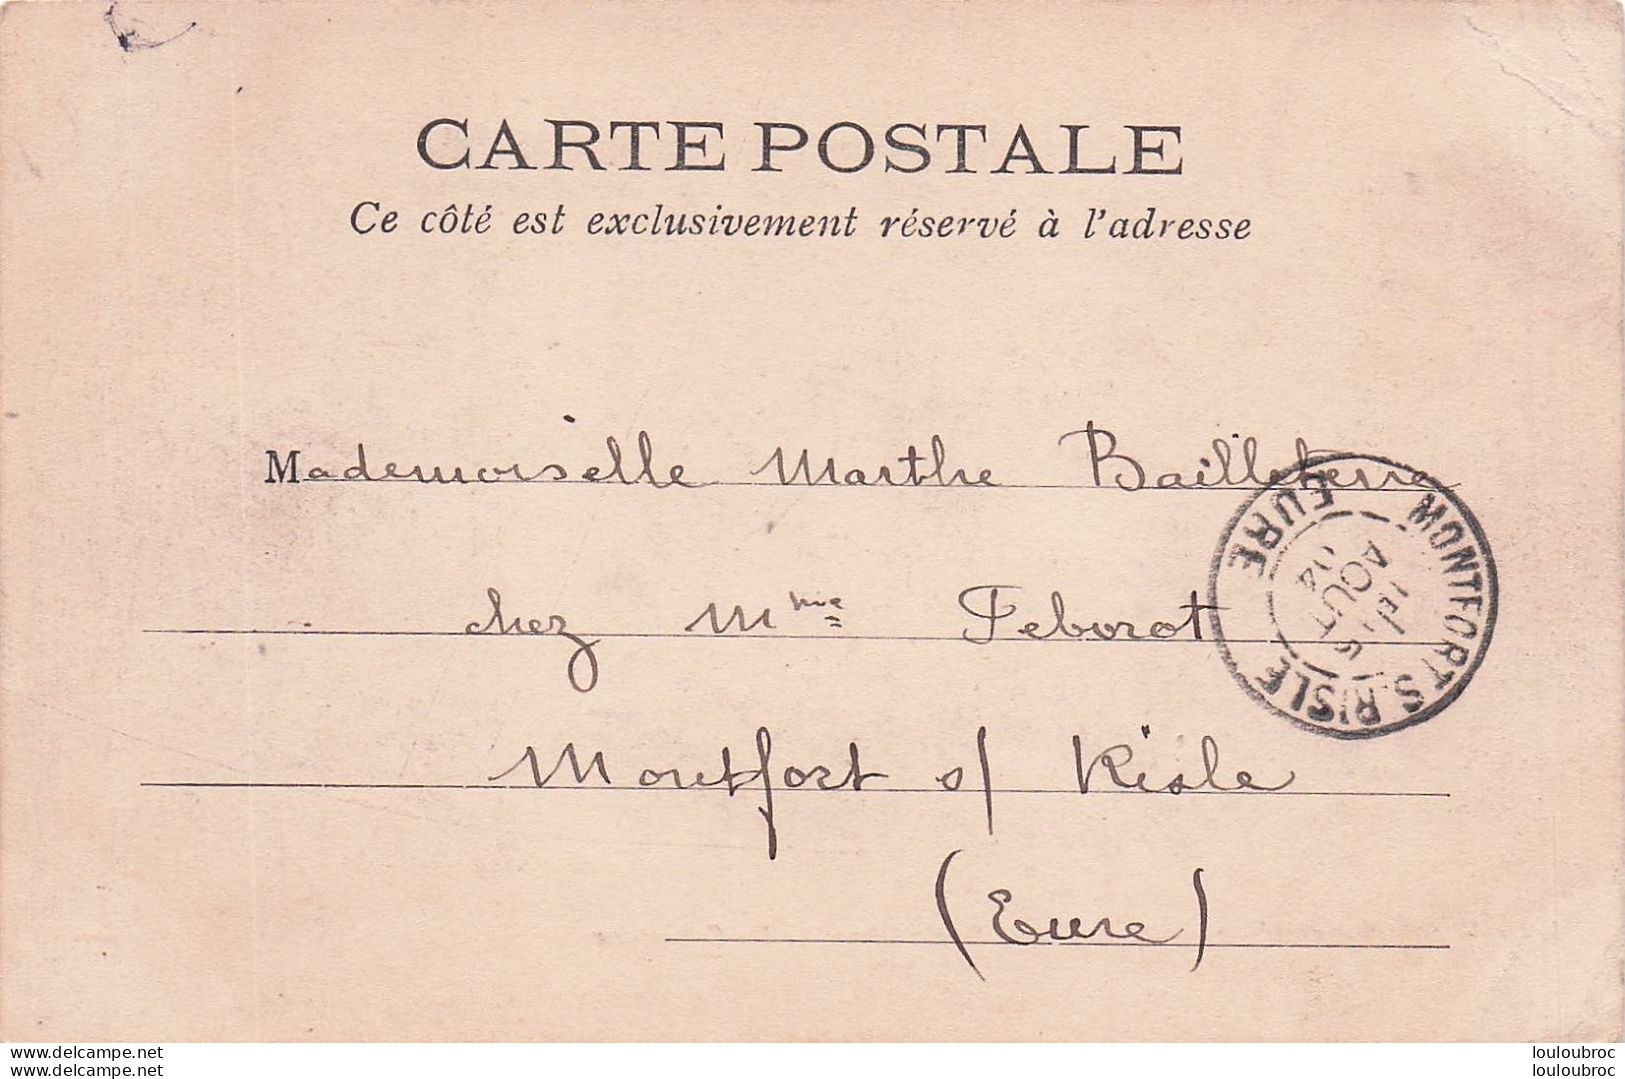 CARTE POSTALE
Ce côté est exclusivement réservé à l'adresse
Mademoiselle Marthe Bailleterre
chez Mme Feborot
Montfort s/ Risle
(Eure)
MONTFORT S. RISLE
EURE
15
AOUT
04
www.delcampe.net
louloubroc
www.delcampe.net
louloubroc